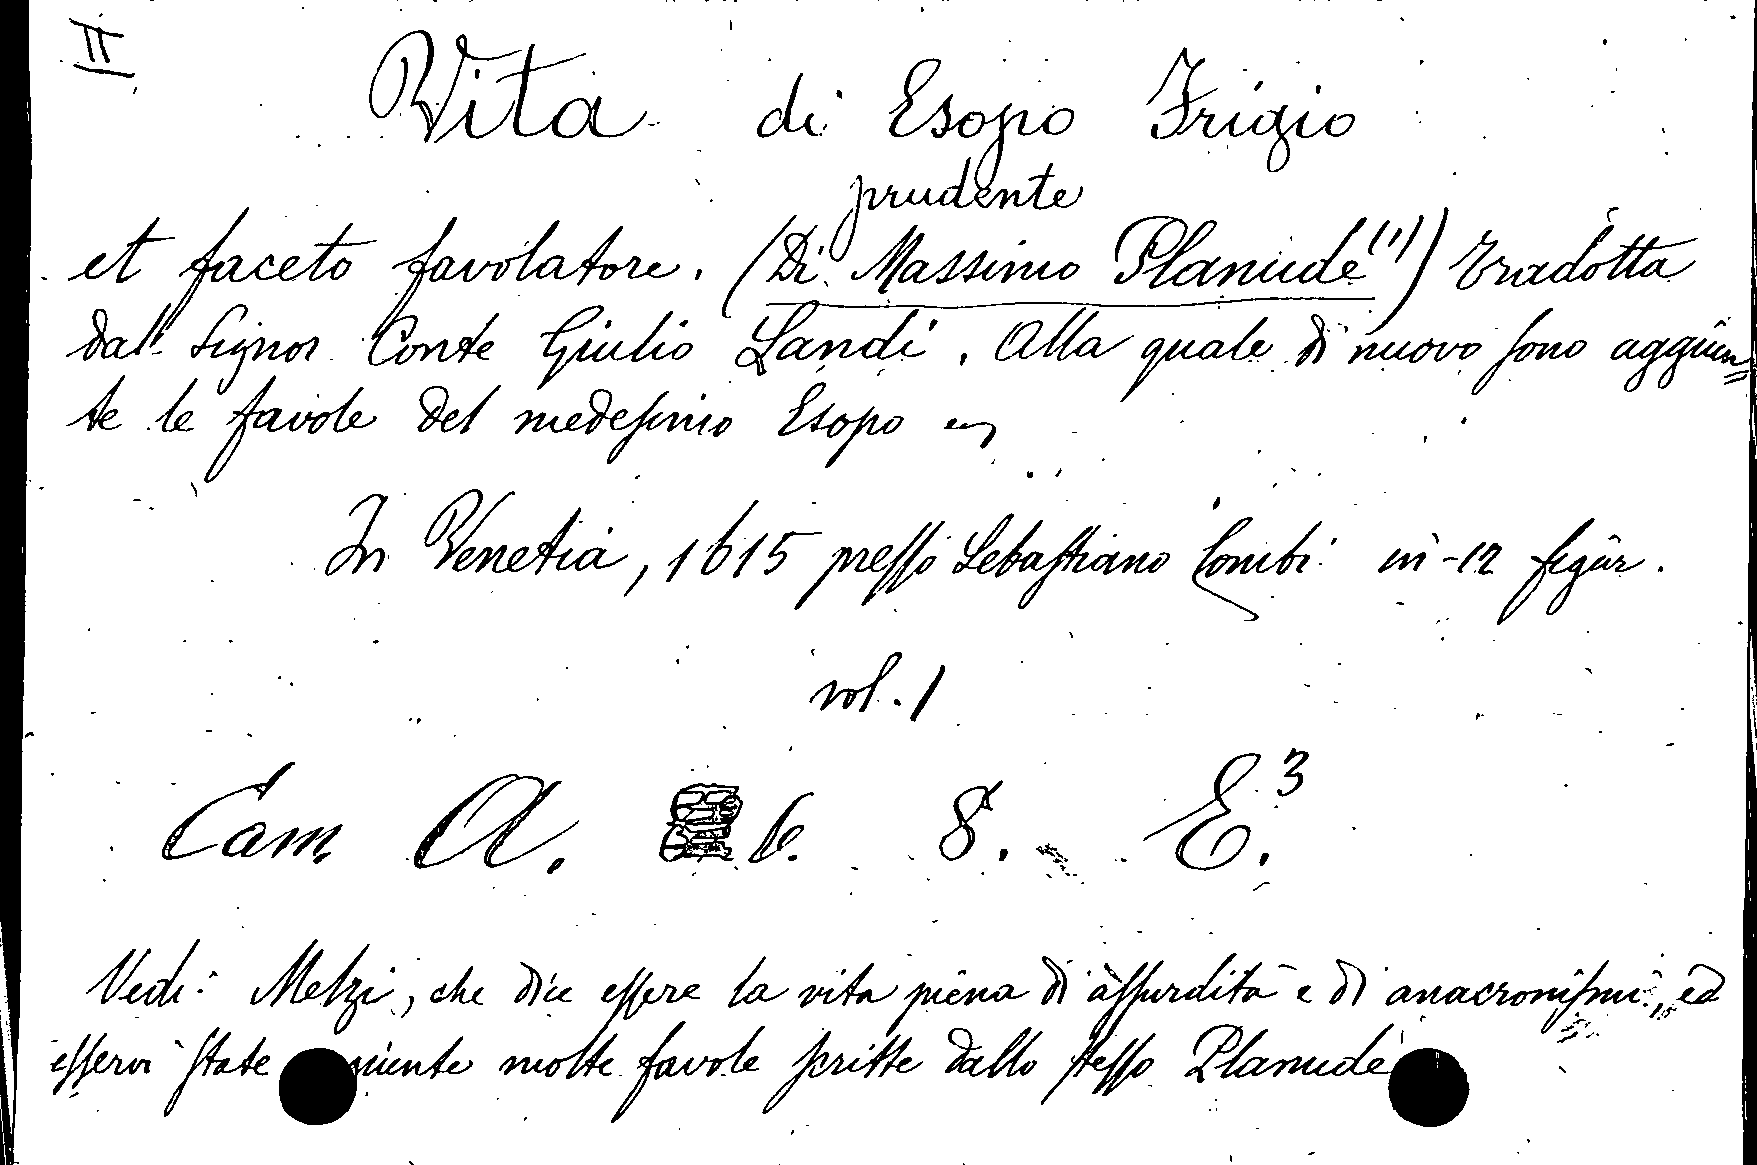 II
Vita di Esopo Frigio
prudente
et faceto favolatore. (Di Massimo Planude (1)) tradotta
dal Signor Conte Giulio Landi. Alla quale di nuovo sono aggiun=
te le favole del medesimo Esopo
In Venetia, 1615 presso Sebastiano Combi in-12 figur.
vol. 1
Cam A. 6. 8. E.3
Vedi Melzi, che dice essere la vita piena di assurdità e di anacronismi, ed
esservi state molte favole scritte dallo stesso Planude